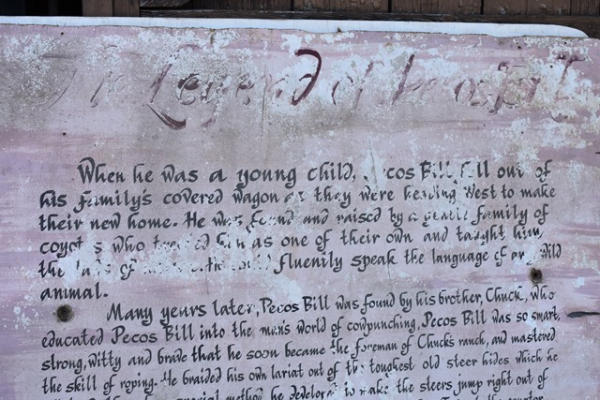 The Legend of Pecos Bill
When he was a young child, Pecos Bill fell out of
his family's covered wagon as they were heading West to make
their new home. He was found and raised by a family of
coyotes who treated him as one of their own and taught him
the of fluenily speak the language of any wild
animal.
Many years later, Pecos Bill was found by his brother, Chuck, who
educated Pecos Bill into the men's world of cowpunching. Pecos Bill was so smart,
strong, witty and brave that he soon became the foreman of Chuck's ranch, and mastered
the skill of roping. He braided his own lariat out of the toughest old steer hides which he
special method he developed to make the steers jump right out of